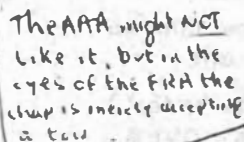 The AAA might NOT
like it, but in the
eyes of the FRA the
is merely accepting
a